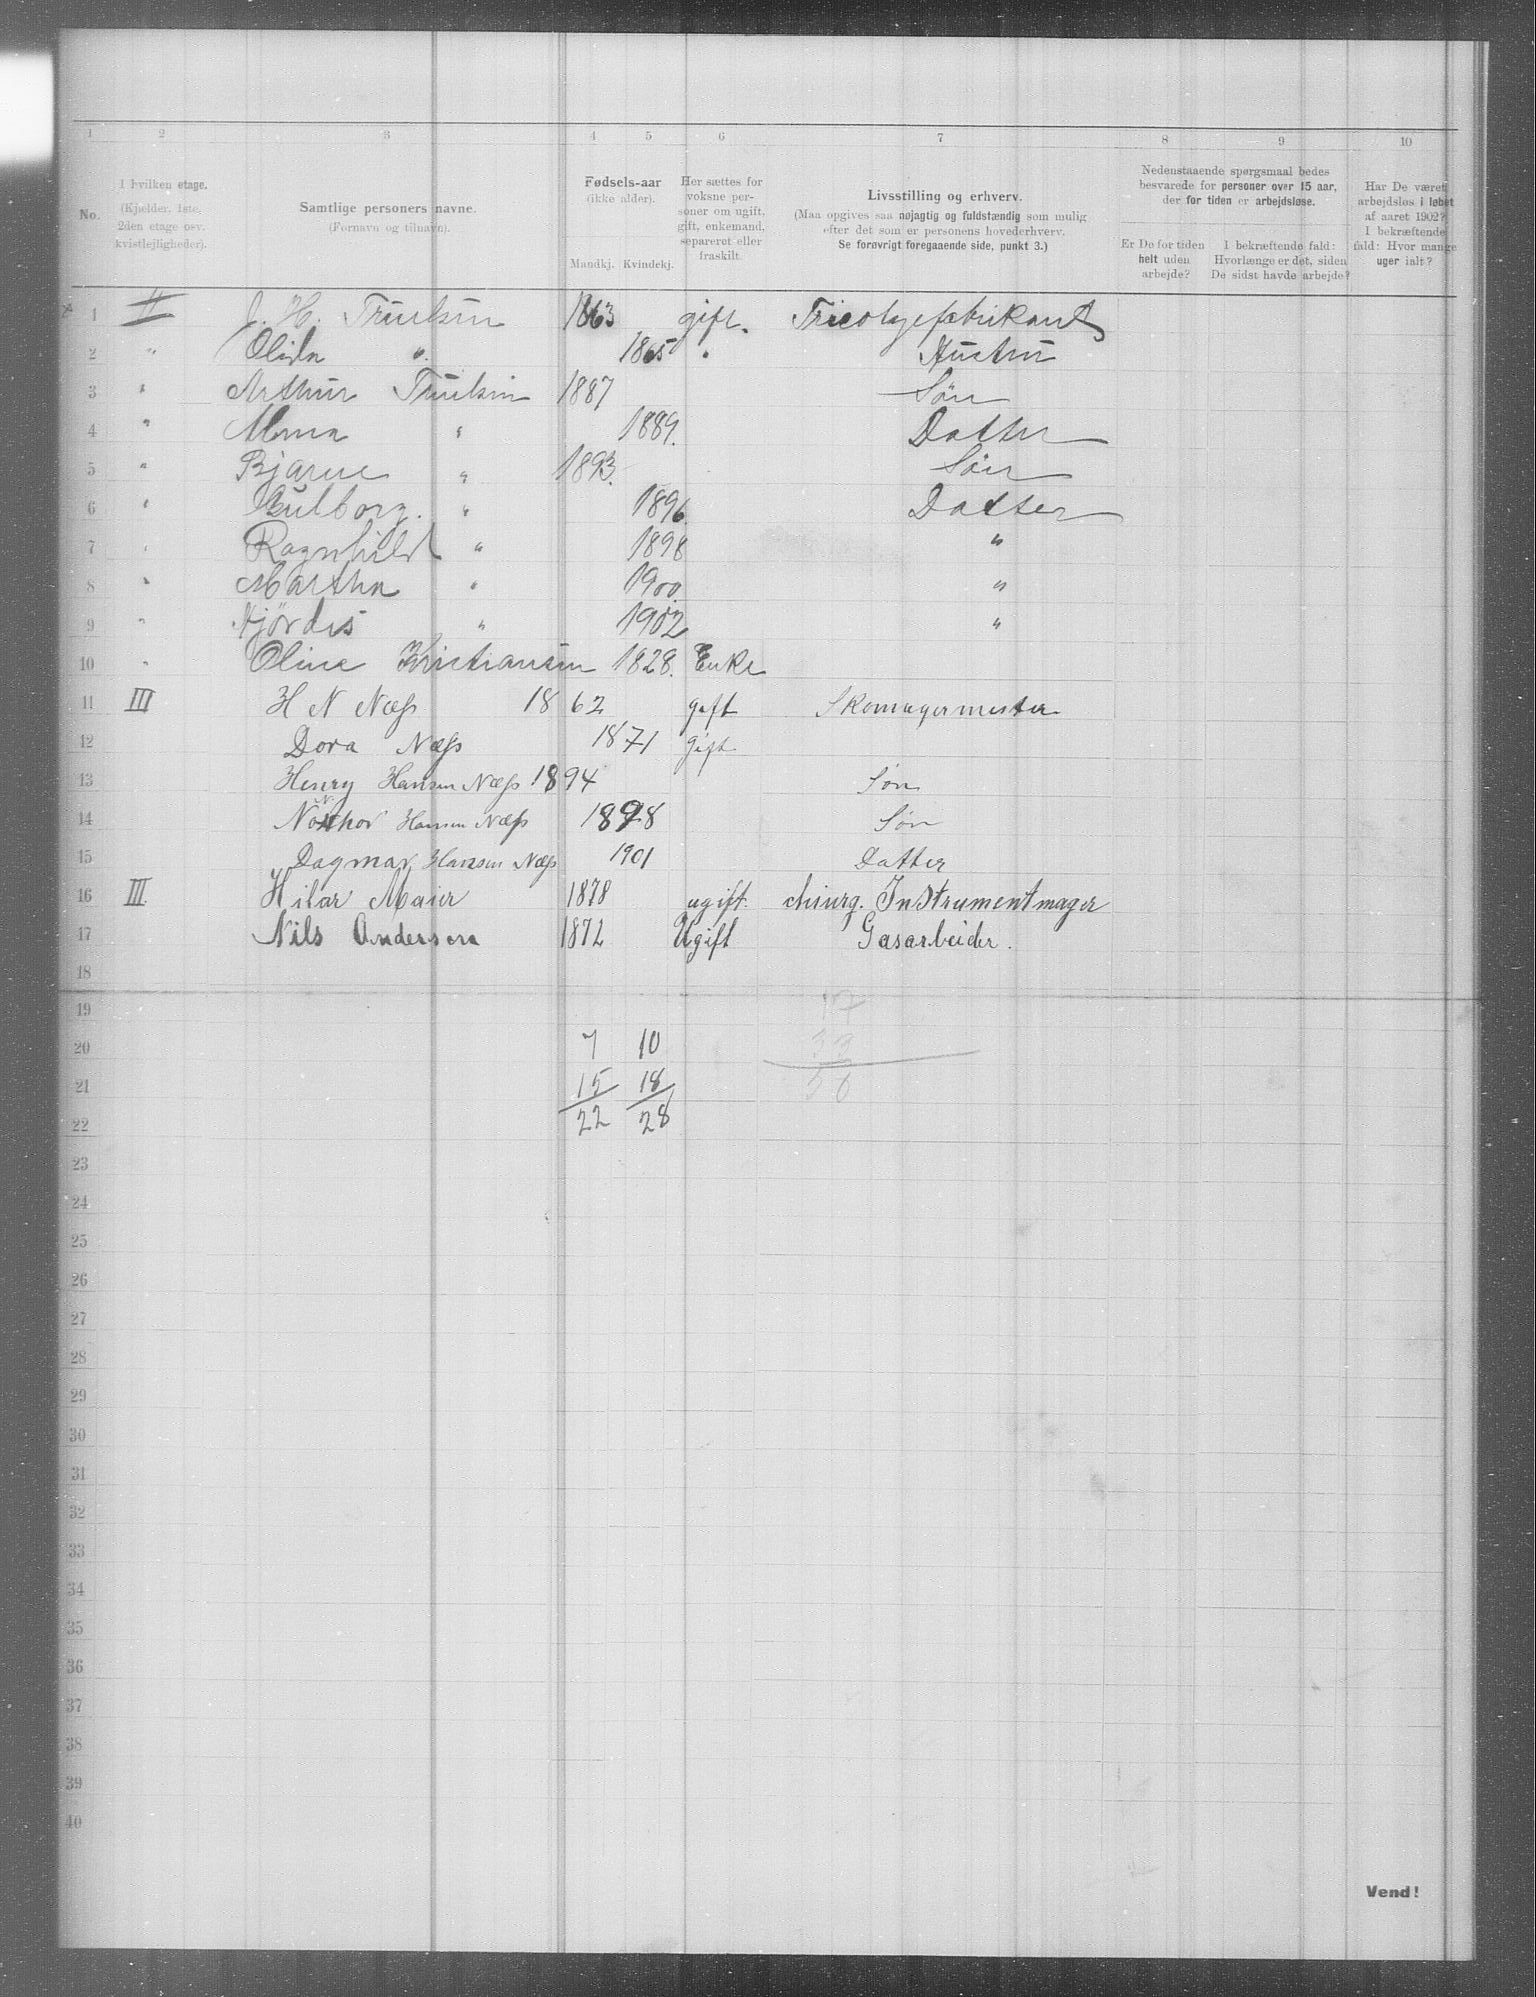 1 2 3 4 5 6 7 8 9 10
No.
I hvilken etage.
(Kjelder, 1ste, 2den etage osv. kvistlejligheder).
Samtlige personers navne.
(Fornavn og tilnavn).
Fødsels-aar
(ikke alder).
Mandkj. Kvindekj.
Her sættes for voksne personer om ugift, gift, enkemand, separeret eller fraskilt
Livsstilling og erhverv.
(Maa opgives saa nøjagtig og fuldstændig som mulig efter det som er personens hovederhverv.
Se forøvrigt foregaaende side, punkt 3.)
Nedenstaaende spørgsmaal bedes besvarede for personer over 15 aar, der for tiden er arbejdsløse.
Er De for tiden helt uden arbejde?
I bekræftende fald: Hvorlænge er det, siden De sidst havde arbejde?
Har De været arbejdsløs i løbet af aaret 1902? I bekræftende fald: Hvor mange uger ialt?
1 II J. H. Truelsen 1863 gift. Tricotagefabrikant
2 " Olida " 1865 " Hustru
3 " Arthur Truelsen 1887 Søn
4 " " 1889. Datter
5 " Bjarne " 1893. Søn
6 " Gulborg. " 1896. Datter
7 " Ragnhild " 1898 "
8 " Martha " 1900. "
9 " Hjørdis " 1902 "
10 " Oline Kristiansen 1828. Enke
11 III H N Næss 1862 gift Skomagermester
12 Dora Næss 1871 gift
13 Henry Hansen Næss 1894 Søn
14 Hansen Næss 1898 Søn
15 Dagmar Hansen Næss 1901 Datter
16 III. Hilar Maier 1878 ugift. chirurg. Instrumentmager
17 Nils Andersen 1872 Ugift Gasarbeider.
18
19 17
20 7 10 33
21 15 18 50
22 22 28
23
24
25
26
27
28
29
30
31
32
33
34
35
36
37
38
39
40
Vend!